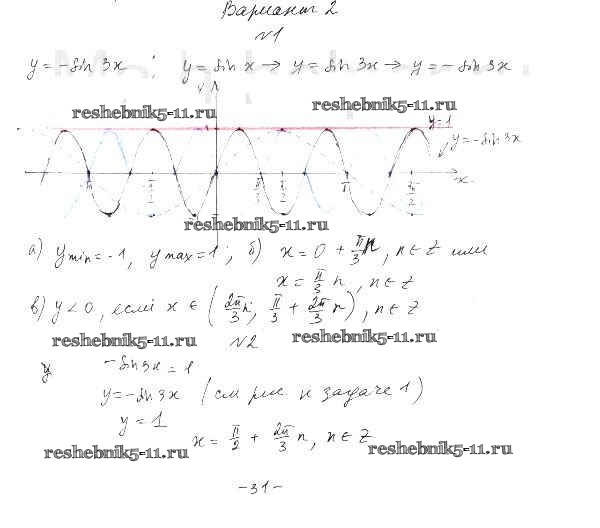 Вариант 2
№1
y = -sin 3x ; y = sin x → y = sin 3x → y = -sin 3x
y
reshebnik5-11.ru reshebnik5-11.ru
y=1
y=-sin 3x
-π -π/2 π/3 π/2 π x
reshebnik5-11.ru
а) y min = -1, y max = 1 ; б) x = 0 + π/3 n, n ∈ Z или
x = π/3 n, n ∈ Z
в) y < 0, если x ∈ (2π/3 n; π/3 + 2π/3 n), n ∈ Z
reshebnik5-11.ru reshebnik5-11.ru
№2
-sin 3x = 1
y = -sin 3x (см рис. к задаче 1)
y = 1
x = π/2 + 2π/3 n, n ∈ Z
reshebnik5-11.ru reshebnik5-11.ru
-31-